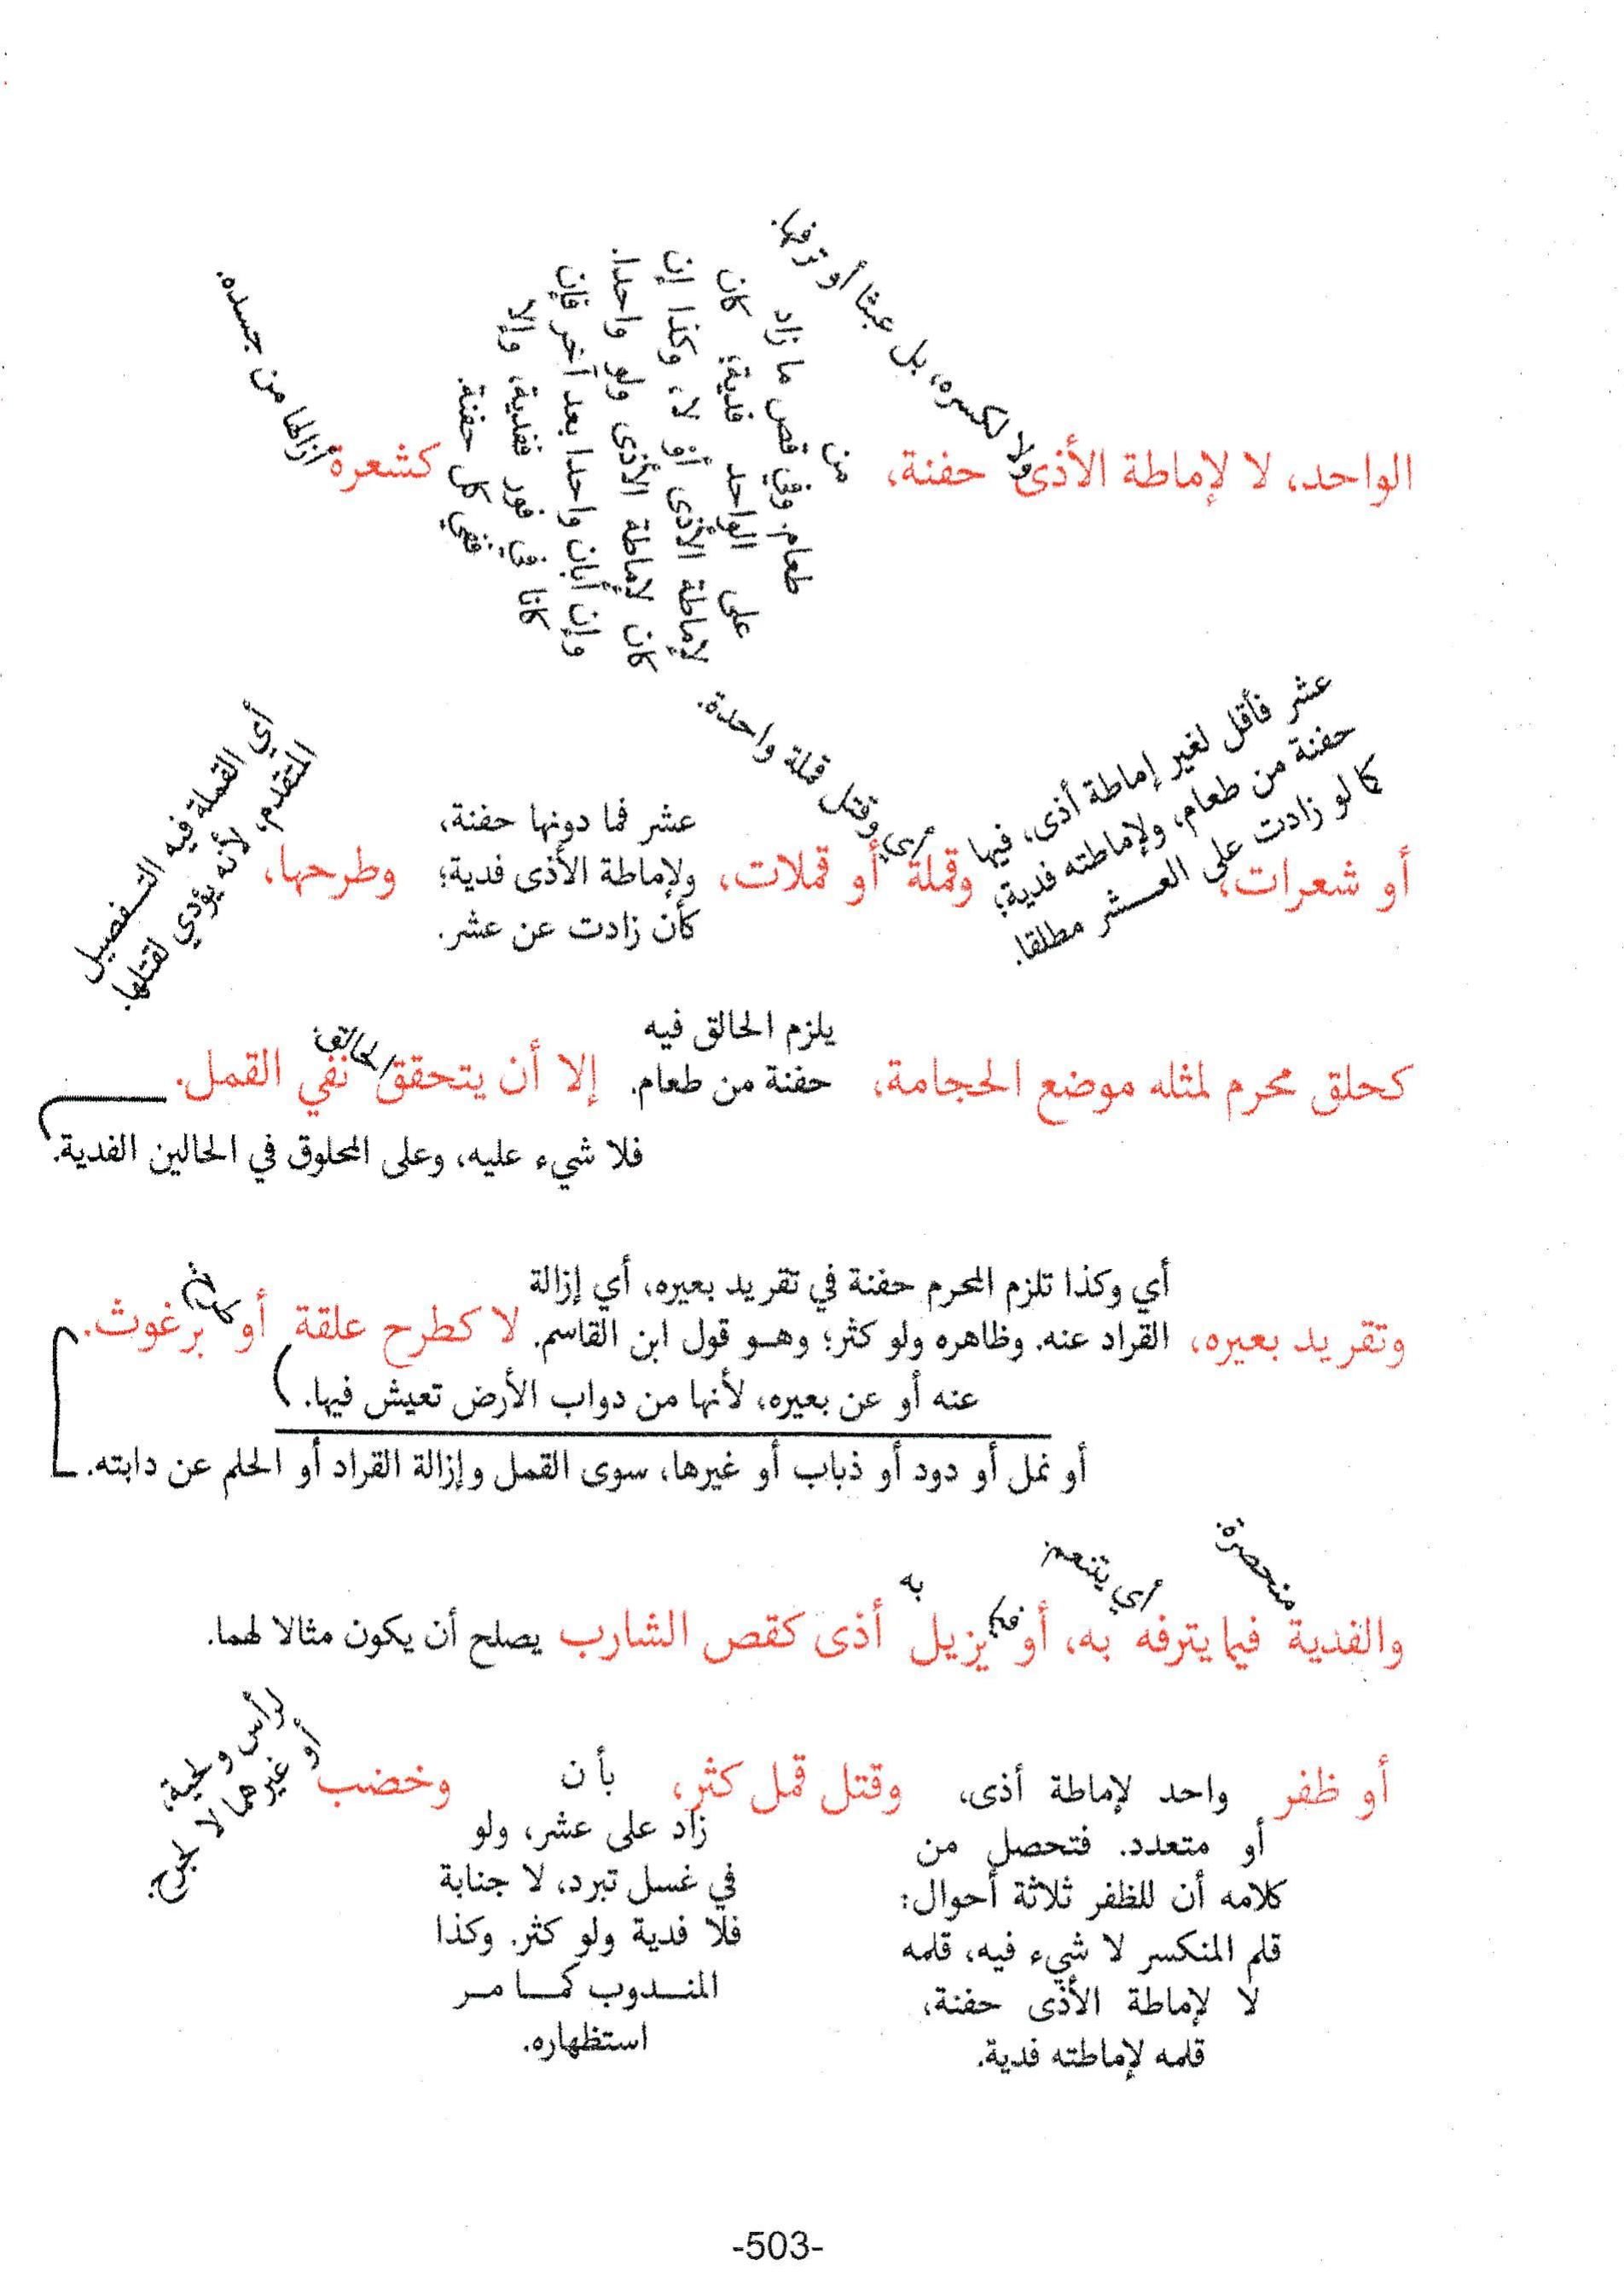 الواحد، لا لإماطة الأذى
ولا لكسره، بل عبثا أو ترفها.
حفنة،
من
طعام. وفي قص ما زاد
على الواحد فدية، كان
لإماطة الأذى أوْ لا، وكذا إن
كان لإماطة الأذى ولو واحدا.
وإن أبان واحدا بعد آخر فإن
كانا في فور ففدية، وإلا
ففي كل حفنة.
كشعرة
أزالها من جسده.
أو شعرات،
عشر فأقل لغير إماطة أذى، فيها
حفنة من طعام، ولإماطته فدية؛
كما لو زادت على العـشر مطلقا.
وقملة
أي وقتل قملة واحدة.
أو قملات،
عشر فما دونها حفنة،
ولإماطة الأذى فدية؛
كأن زادت عن عشر.
وطرحها،
أي القملة فيه التـفصيل
المتقدم، لأنه يؤدي لقتلها.
كحلق محرم لمثله موضع الحجامة،
يلزم الحالق فيه
حفنة من طعام.
إلا أن يتحقق
الحالق
نفي القمل.
فلا شيء عليه، وعلى المحلوق في الحالين الفدية.
وتقريد بعيره،
أي وكذا تلزم المحرم حفنة في تقريد بعيره، أي إزالة
القراد عنه. وظاهره ولو كثر؛ وهـو قول ابن القاسم.
لا كطرح علقة
عنه أو عن بعيره، لأنها من دواب الأرض تعيش فيها.
أو
برغوث.
أو نمل أو دود أو ذباب أو غيرها، سوى القمل وإزالة القراد أو الحلم عن دابته.
والفدية
منحصرة
فيما يترفه
أي يتنعم
به، أو
فيما
يزيل
به
أذى كقص الشارب
يصلح أن يكون مثالا لهما.
أو ظفر
واحد لإماطة أذى،
أو متعدد. فتحصل من
كلامه أن للظفر ثلاثة أحوال:
قلم المنكسر لا شيء فيه، قلمه
لا لإماطة الأذى حفنة،
قلمه لإماطته فدية.
وقتل قمل كثر،
بأن
زاد على عشر، ولو
في غسل تبرد، لا جنابة
فلا فدية ولو كثر. وكذا
المنـدوب كمـا مـر
استظهاره.
وخضب
لرأس ولحية،
أو غيرهما لا لجرح.
-503-